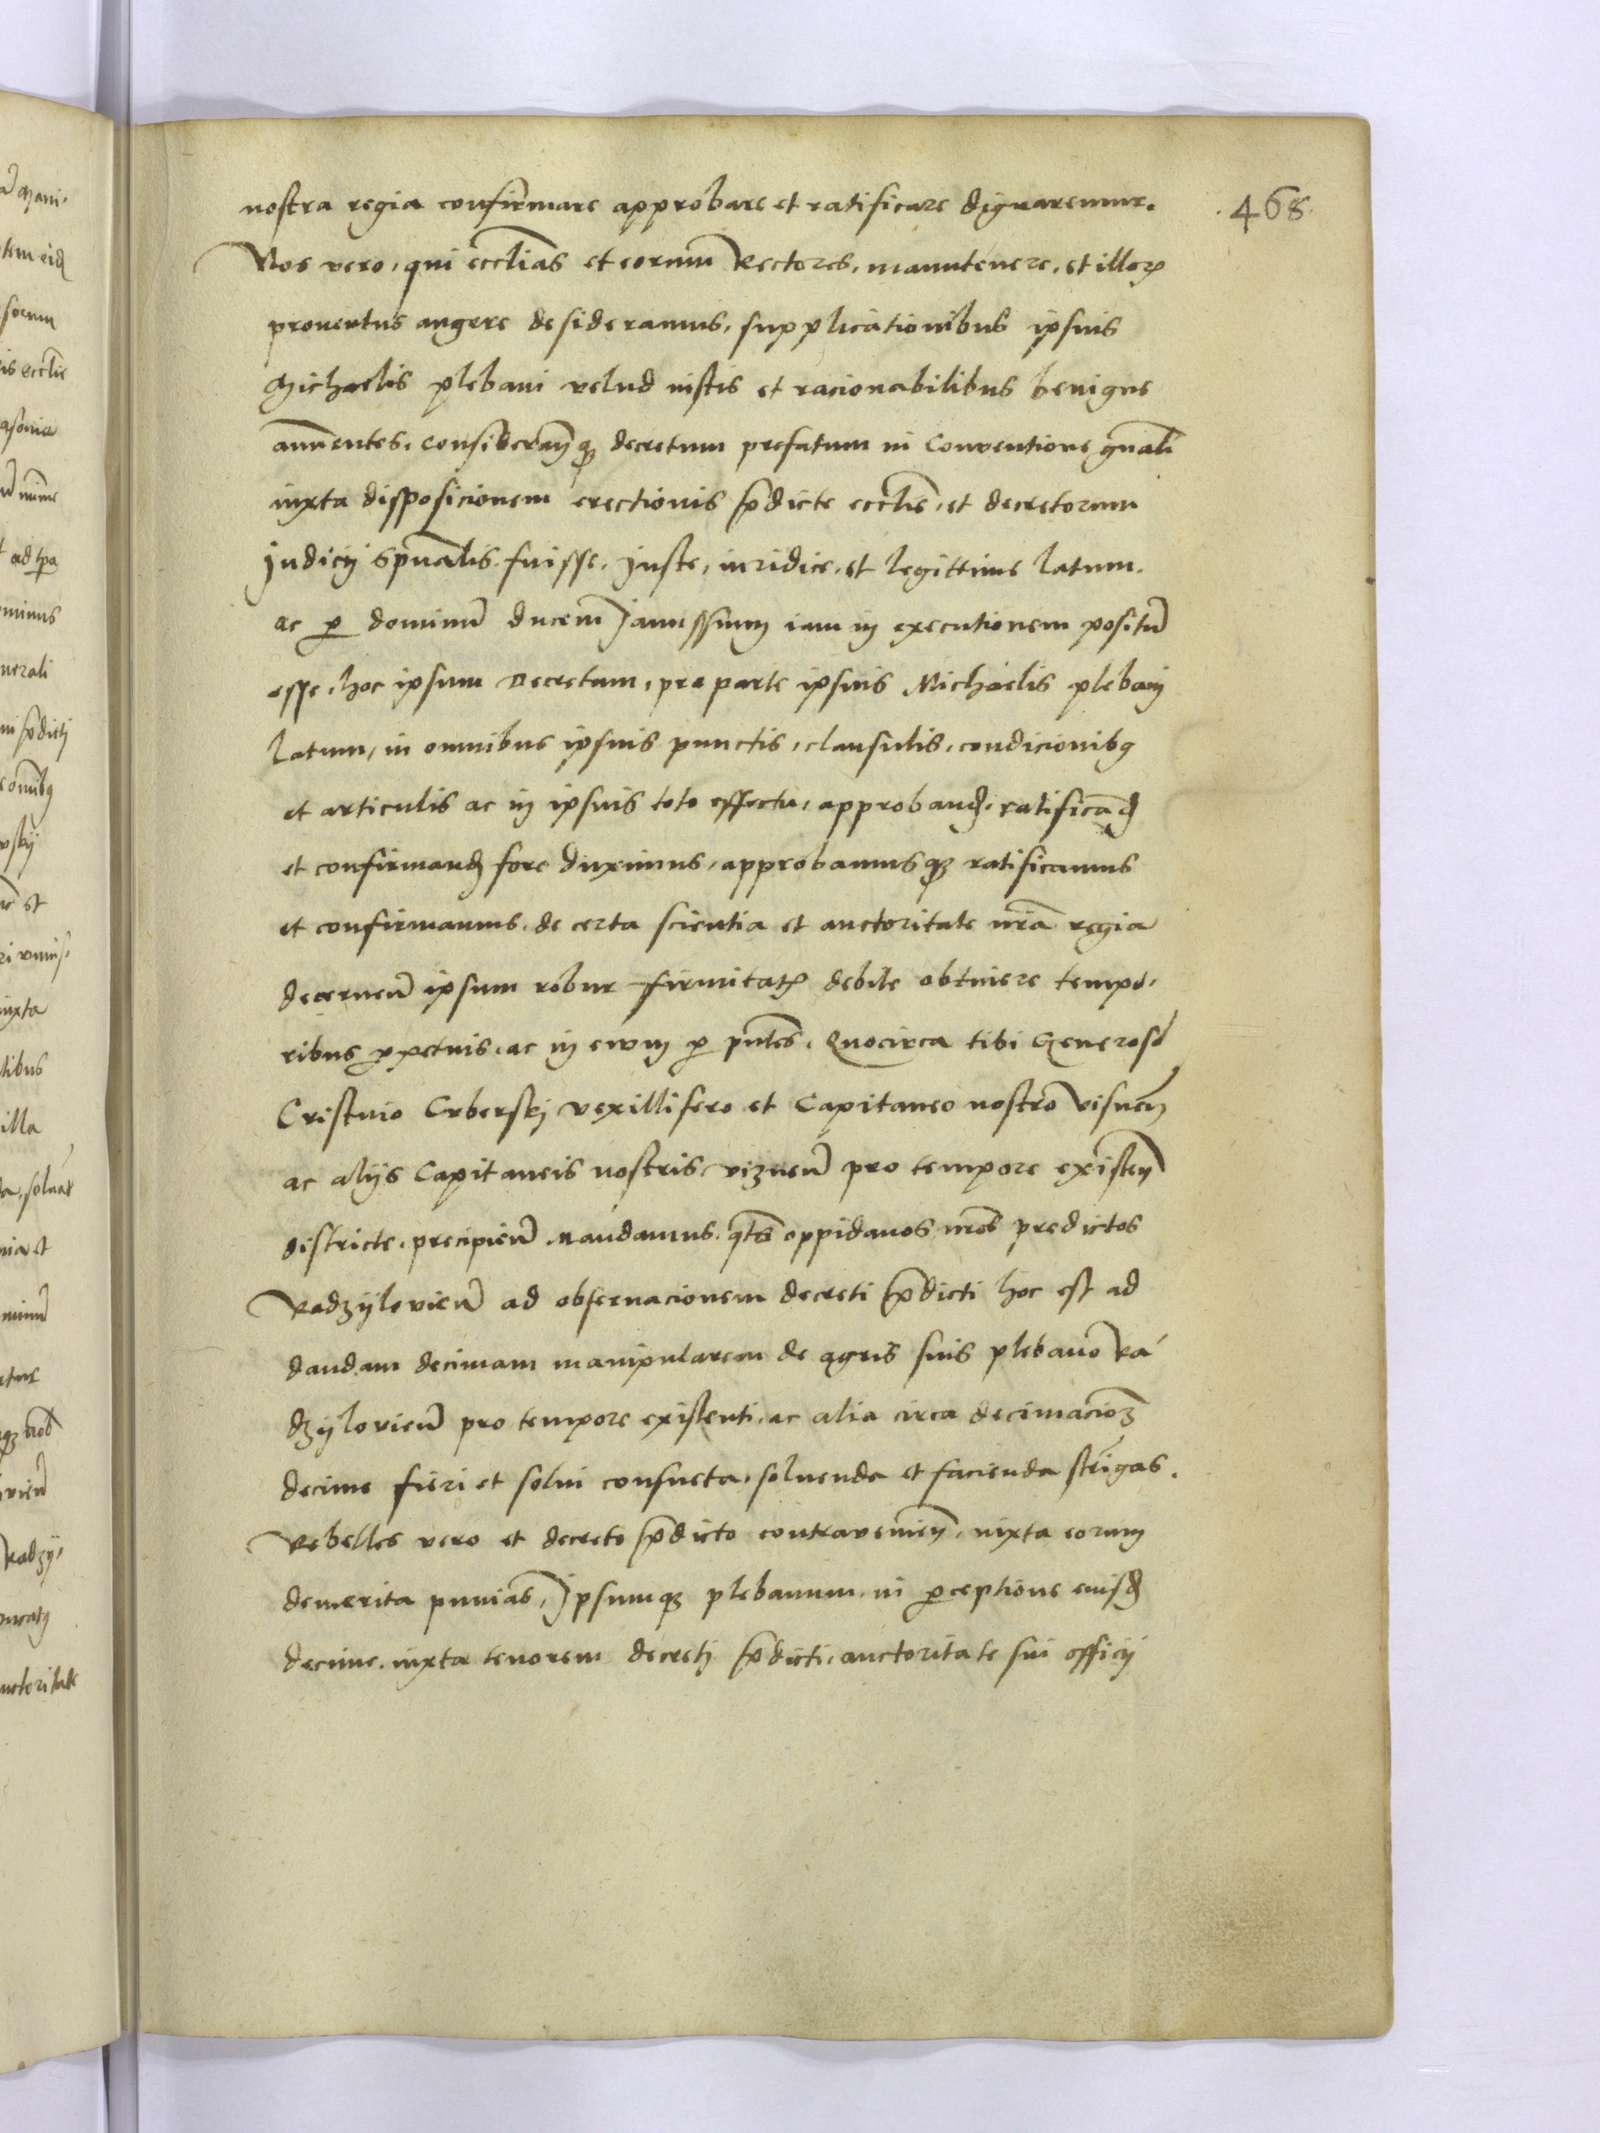 nostra regia confirmare approbare et ratificare dignaremur. 468
Nos vero, qui ecclias et eorum Rectores, manutenere, et illoꝝ
proventus augere desideramus, supplicationibus ipsius
Michaelis plebani velud iustis et racionabilibus benigne
annuentes. Considerañ qꝫ decretum prefatum in Conventione gnali
iuxta disposicionem erectionis p̄dicte ecclie, et decretorum
Judicij spualis. fuisse, juste, iuridice, et legittime latum.
ac ꝑ dominu ducem Janussium iam in executionem positu
esse, hoc ipsum Decretum, pro parte ipsius Michaelis plebani
latum, in omnibus ipsius punctis, clausulis, condicionibꝫ
et articulis ac in ipsius toto effectu, approband, ratificand
et confirmand fore duximus, approbamusqꝫ ratificamus
et confirmamus. de certa scientia et auctoritate nra regia
decerneñ ipsum robur firmitatꝭ debite obtinere tempo-
ribus ꝑpetuis, ac in evum ꝑ pntes. Quocirca tibi Generoso
Cristinio Crberskj vexillifero et Capitaneo nostro Visneñ
ac alijs Capitaneis nostris vizneñ pro tempore existeñ
districte, precipieñ mandamus. qts oppidanos nros predictos
Radzyilovieñ ad observacionem decreti p̄dicti hoc est ad
dandam decimam manipularem de agris suis plebano Ra-
dzyilovieñ pro tempore existenti, ac alia circa decimacioꝫ
decime fieri et solvi consueta, solvenda et facienda strīgas.
Rebelles vero et decreto p̄dicto contravenieñ, iuxta eorum
demerita punias, Ipsumqꝫ plebanum. in ꝑceptione eiusd
decime. iuxta tenorem decreti p̄dicti, auctoritate sui officij